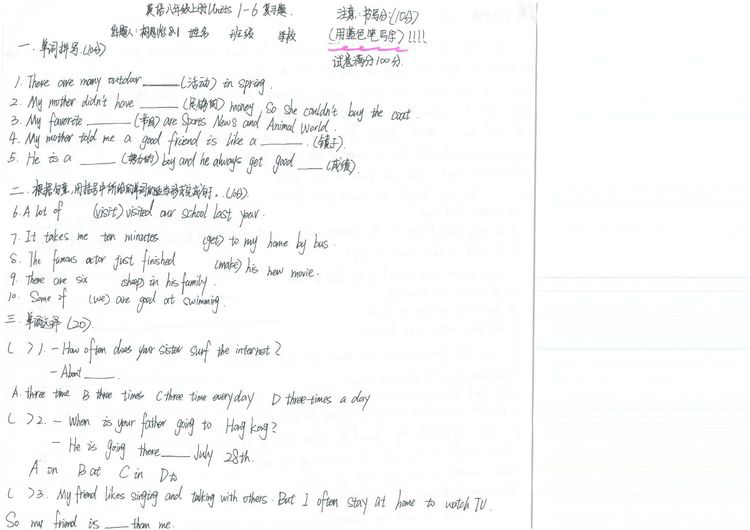 英语八年级上册Units 1-6 复习题. 注意:书写分:(10分)
出题人: 801 姓名 班级 学校 (用蓝色笔写字)!!!!
试卷满分100分.
一.单词拼写.(10分)
1. There are many outdoor ______ (活动) in spring.
2. My mother didn't have ______ money, So she couldn't buy the coat.
3. My favorite ______ (节目) are Sports News and Animal World.
4. My mother told me a good friend is like a ______. (镜子)
5. He is a ______ (努力的) boy and he always get good ___ (成绩)
二.根据句意,用括号中所给的单词的适当形式完成句子.(10分)
6. A lot of (visit) visited our school last year.
7. It takes me ten minutes (get) to my home by bus.
8. The famous actor just finished (make) his new movie.
9. There are six (sheep) in his family.
10. Some of (we) are good at swimming.
三.单项选择 (20).
( ) 1. - How often does your sister surf the internet?
- About ____.
A. three time B three times C three time everyday D three-times a day
( ) 2. - When is your father going to Hong Kong?
- He is going there ____ July 28th.
A on B at C in D to
( ) 3. My friend likes singing and talking with others. But I often stay at home to watch TV.
So my friend is ____ than me.